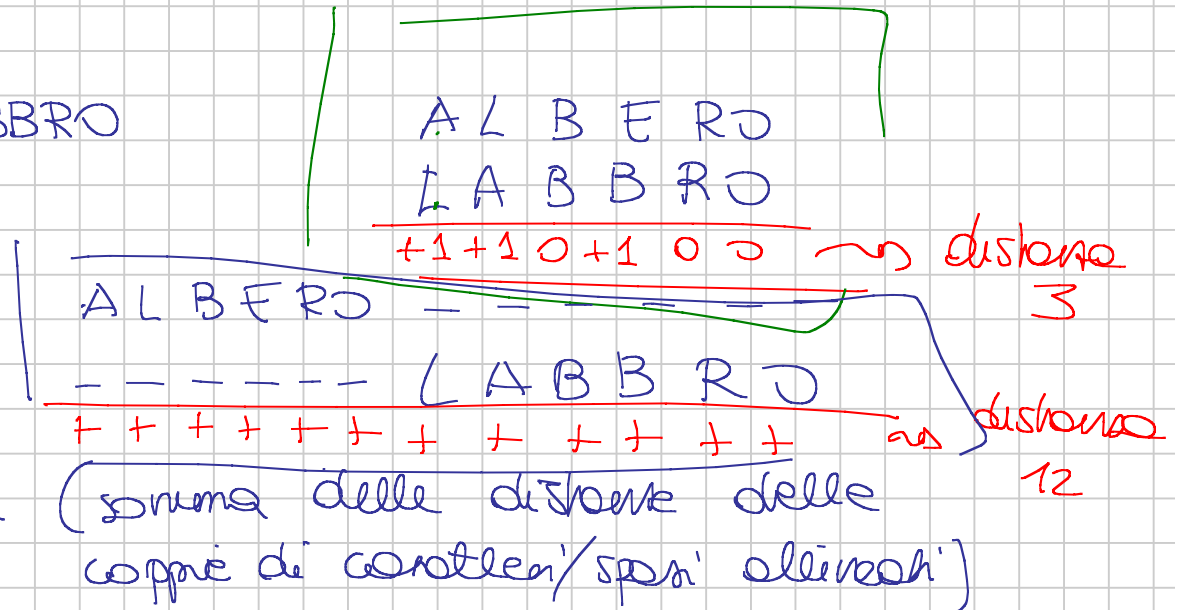 BRO
A L B E R O
L A B B R O
+1 +1 0 +1 0 0 ~> distanza
3
A L B E R O - - - - - -
- - - - - - L A B B R O
+ + + + + + + + + + + + ~> distanza
12
(somma delle distanze delle
coppie di caratteri/spazi allineati)